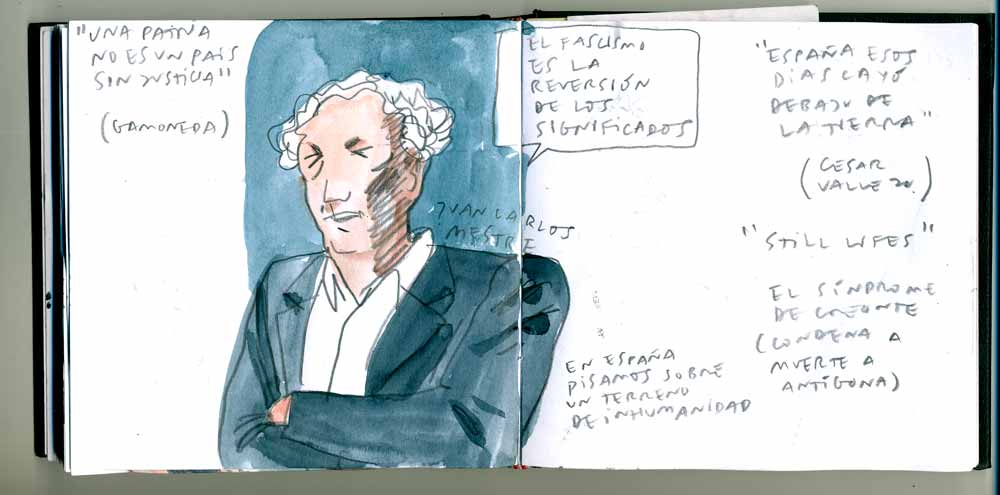 "UNA PATRIA
NO ES UN PAÍS
SIN JUSTICIA"
(GAMONEDA)
EL FASCISMO
ES LA
REVERSIÓN
DE LOS
SIGNIFICADOS
JUAN CARLOS
MESTRE
EN ESPAÑA
PISAMOS SOBRE
UN TERRENO
DE INHUMANIDAD
"ESPAÑA ESOS
DÍAS CAYÓ
DEBAJO DE
LA TIERRA"
(CESAR
VALLEJO.)
"STILL LIFES"
EL SÍNDROME
DE CREONTE
(CONDENA A
MUERTE A
ANTÍGONA)